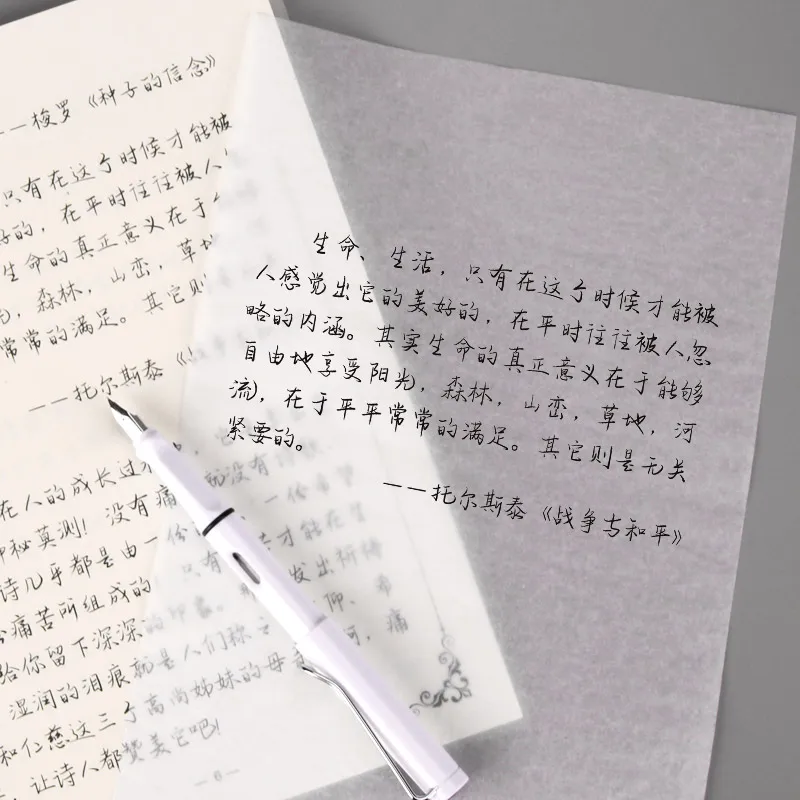 ——梭罗《种子的信念》
只有在这个时候才能被
好的，在平时往往被人
生命的真正意义在于
森林，山峦，草地
常常的满足。其它则
——托尔斯泰《
在人的成长过
神秘莫测！没有痛 就没有
诗几乎都是由一份 一份希望
痛苦所组成的！只有 才能在
给你留下深深的印象。 发出祈祷
湿润的泪痕就是人们称之 仰、希
和仁慈这三个高尚姊妹的母 痛
，让诗人都赞美它吧！
—6—
生命、生活，只有在这个时候才能被
人感觉出它的美好的，在平时往往被人忽
略的内涵。其实生命的真正意义在于能够
自由地享受阳光，森林，山峦，草地，河
流，在于平平常常的满足。其它则是无关
紧要的。
——托尔斯泰《战争与和平》